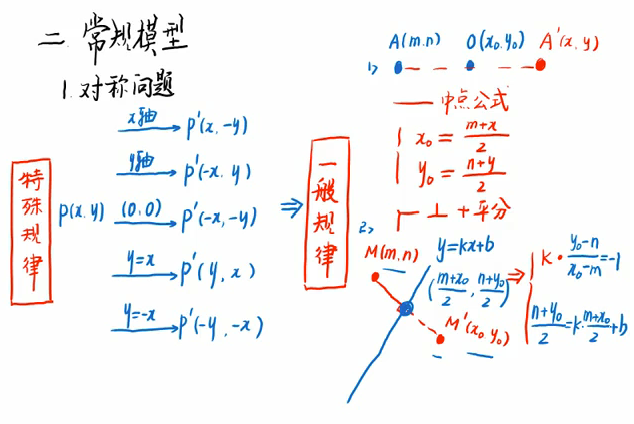 二. 常规模型
1. 对称问题
特殊规律
P(x.y)
x轴 P'(x,-y)
y轴 P'(-x.y)
(0,0) P'(-x,-y)
y=x P'(y,x)
y=-x P'(-y,-x)
⇒
一般规律
1>
A(m.n) O(x₀.y₀) A'(x,y)
— 中点公式
x₀ = \frac{m+x}{2}
y₀ = \frac{n+y}{2}
⊥ + 平分
2>
M(m,n) y=kx+b
(\frac{m+x₀}{2}, \frac{n+y₀}{2})
M'(x₀.y₀)
⇒
k·\frac{y₀-n}{x₀-m}=-1
\frac{n+y₀}{2}=k·\frac{m+x₀}{2}+b